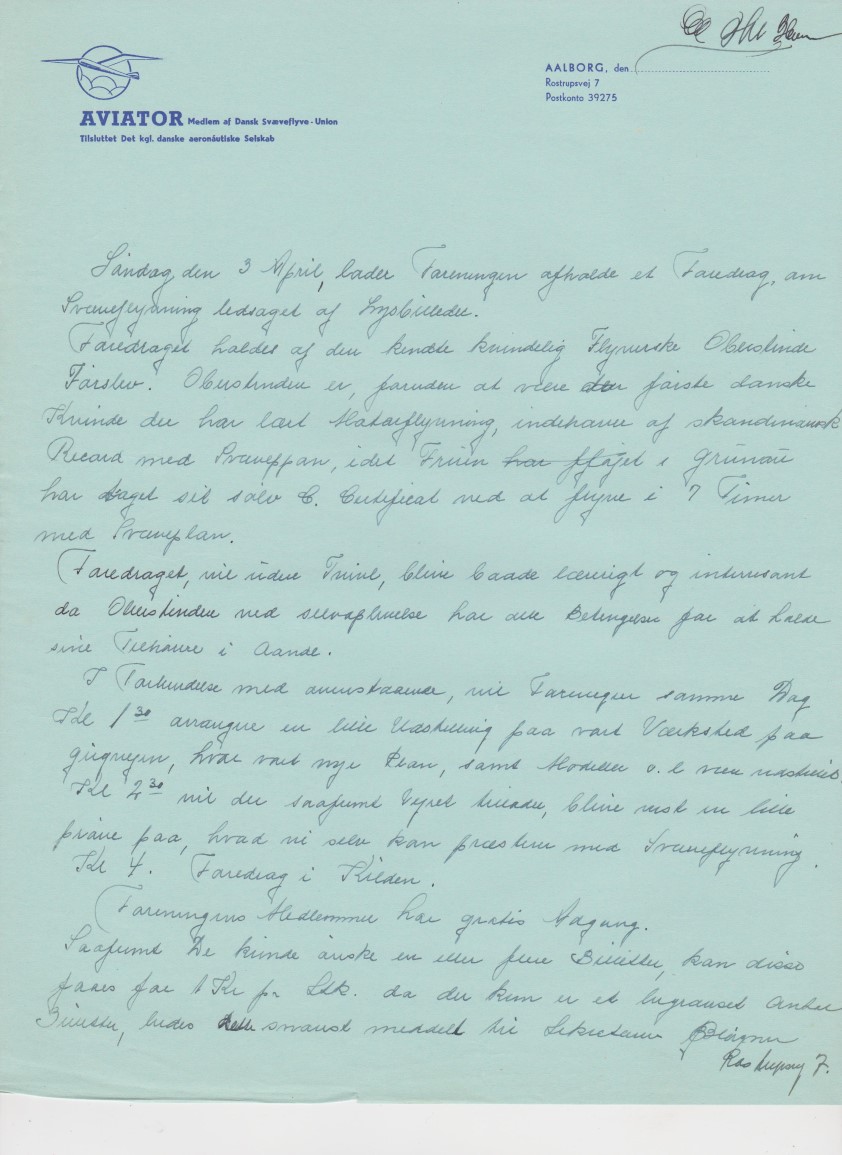 AALBORG, den
Rostrupsvej 7
Postkonto 39275
AVIATOR Medlem af Dansk Svæveflyve-Union
Tilsluttet Det kgl. danske aeronautiske Selskab
Søndag den 3 April, lader Foreningen afholde et Foredrag, om
Svæveflyvning ledsaget af Lysbilleder.
Foredraget holdes af den kendte kvindelig Flyverske Oberstinde
Førslev. Oberstinden er, foruden at være den første danske
Kvinde der har lært Motorflyvning, indehaver af skandinavisk
Record med Svæveplan, idet Fruen har fløjet i Grunau
har taget sit sølv C. Certificat ved at flyve i 7 Timer
med Svæveplan.
Foredraget, vil uden Tvivl, blive baade lærerigt og interresant
da Oberstinden ved selvoplevelse har alle Betingelser for at holde
sine Tilhører i Aande.
I Forbindelse med ovenstaaende, vil Foreningen samme Dag
Kl 1 30 arrangere en lille Udstilling paa vort Værksted paa
hvor vort nye Plan, samt Modeller o. l være udstillet.
Kl 2 30 vil der saafremt Vejret tillader, blive vist en lille
prøve paa, hvad vi selv kan præstere med Svæveflyvning.
Kl 4. Foredrag i Kilden.
Foreningens Medlemmer har gratis Adgang.
Saafremt De kunde ønske en eller flere Billetter, kan disse
faaes for 1 Kr pr Stk. da der kun er et begrænset Antal
Billetter, bedes dette snarest meddelt til Sekretæren
Rostrupsvej 7.